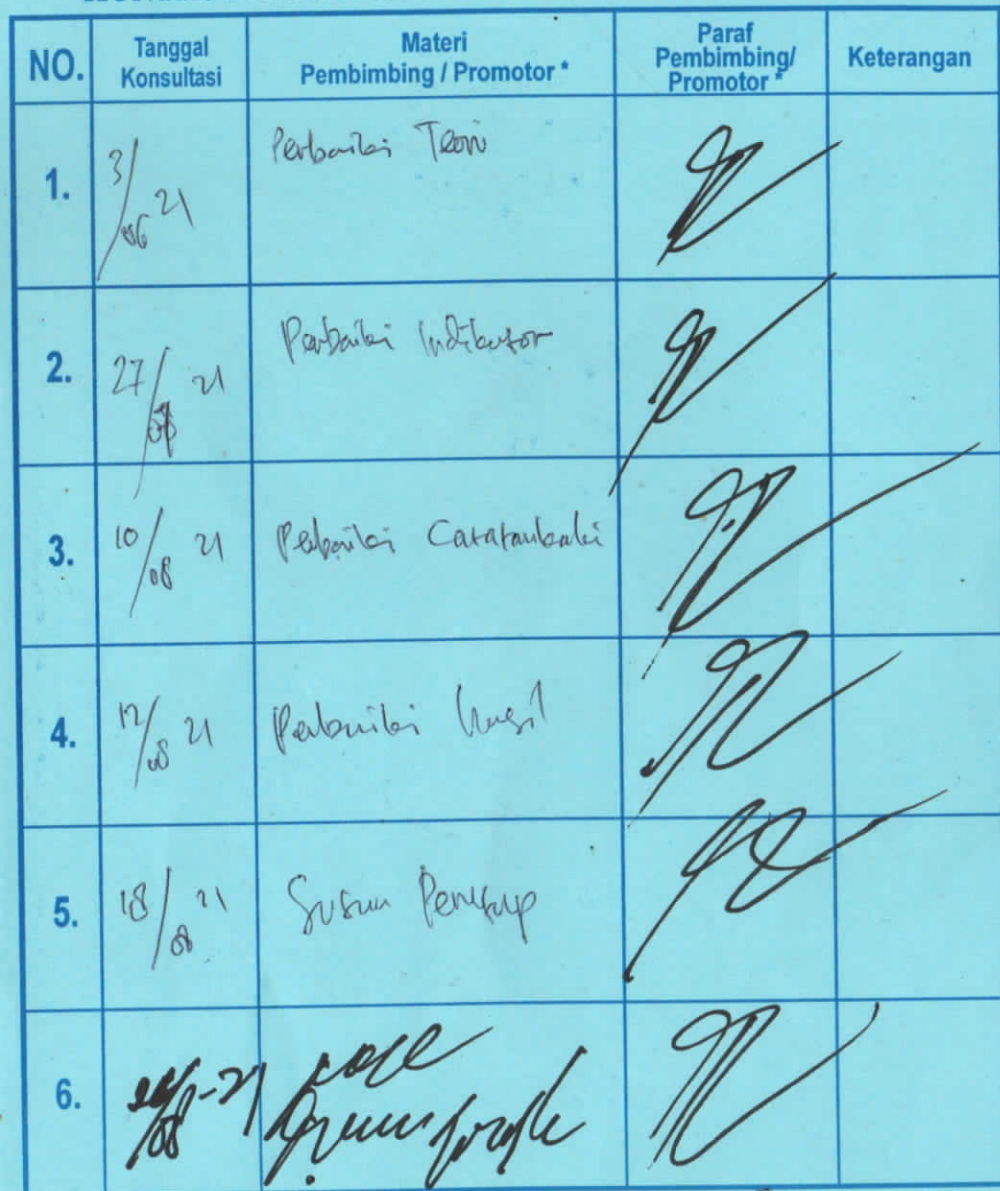 NO.
Tanggal
Konsultasi
Materi
Pembimbing / Promotor *
Paraf
Pembimbing/
Promotor *
Keterangan
1.
3/06 21
Perbaiki Teori
2.
27/ 21
Perbaiki Indikator
3.
10/08 21
Perbaiki Catatan kaki
4.
12/08 21
Perbaiki hasil
5.
18/08 21
Susun Penutup
6.
/08-21
acc